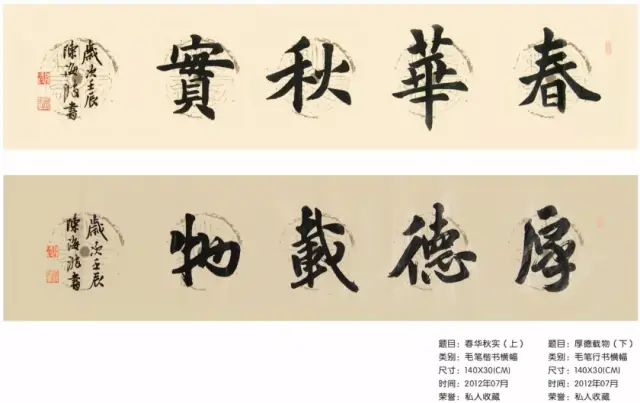 春華秋實
歲次壬辰
陳海波書
厚德載物
歲次壬辰
陳海波書
题目：春华秋实（上）
类别：毛笔楷书横幅
尺寸：140X30(CM)
时间：2012年07月
荣誉：私人收藏
题目：厚德载物（下）
类别：毛笔行书横幅
尺寸：140X30(CM)
时间：2012年07月
荣誉：私人收藏